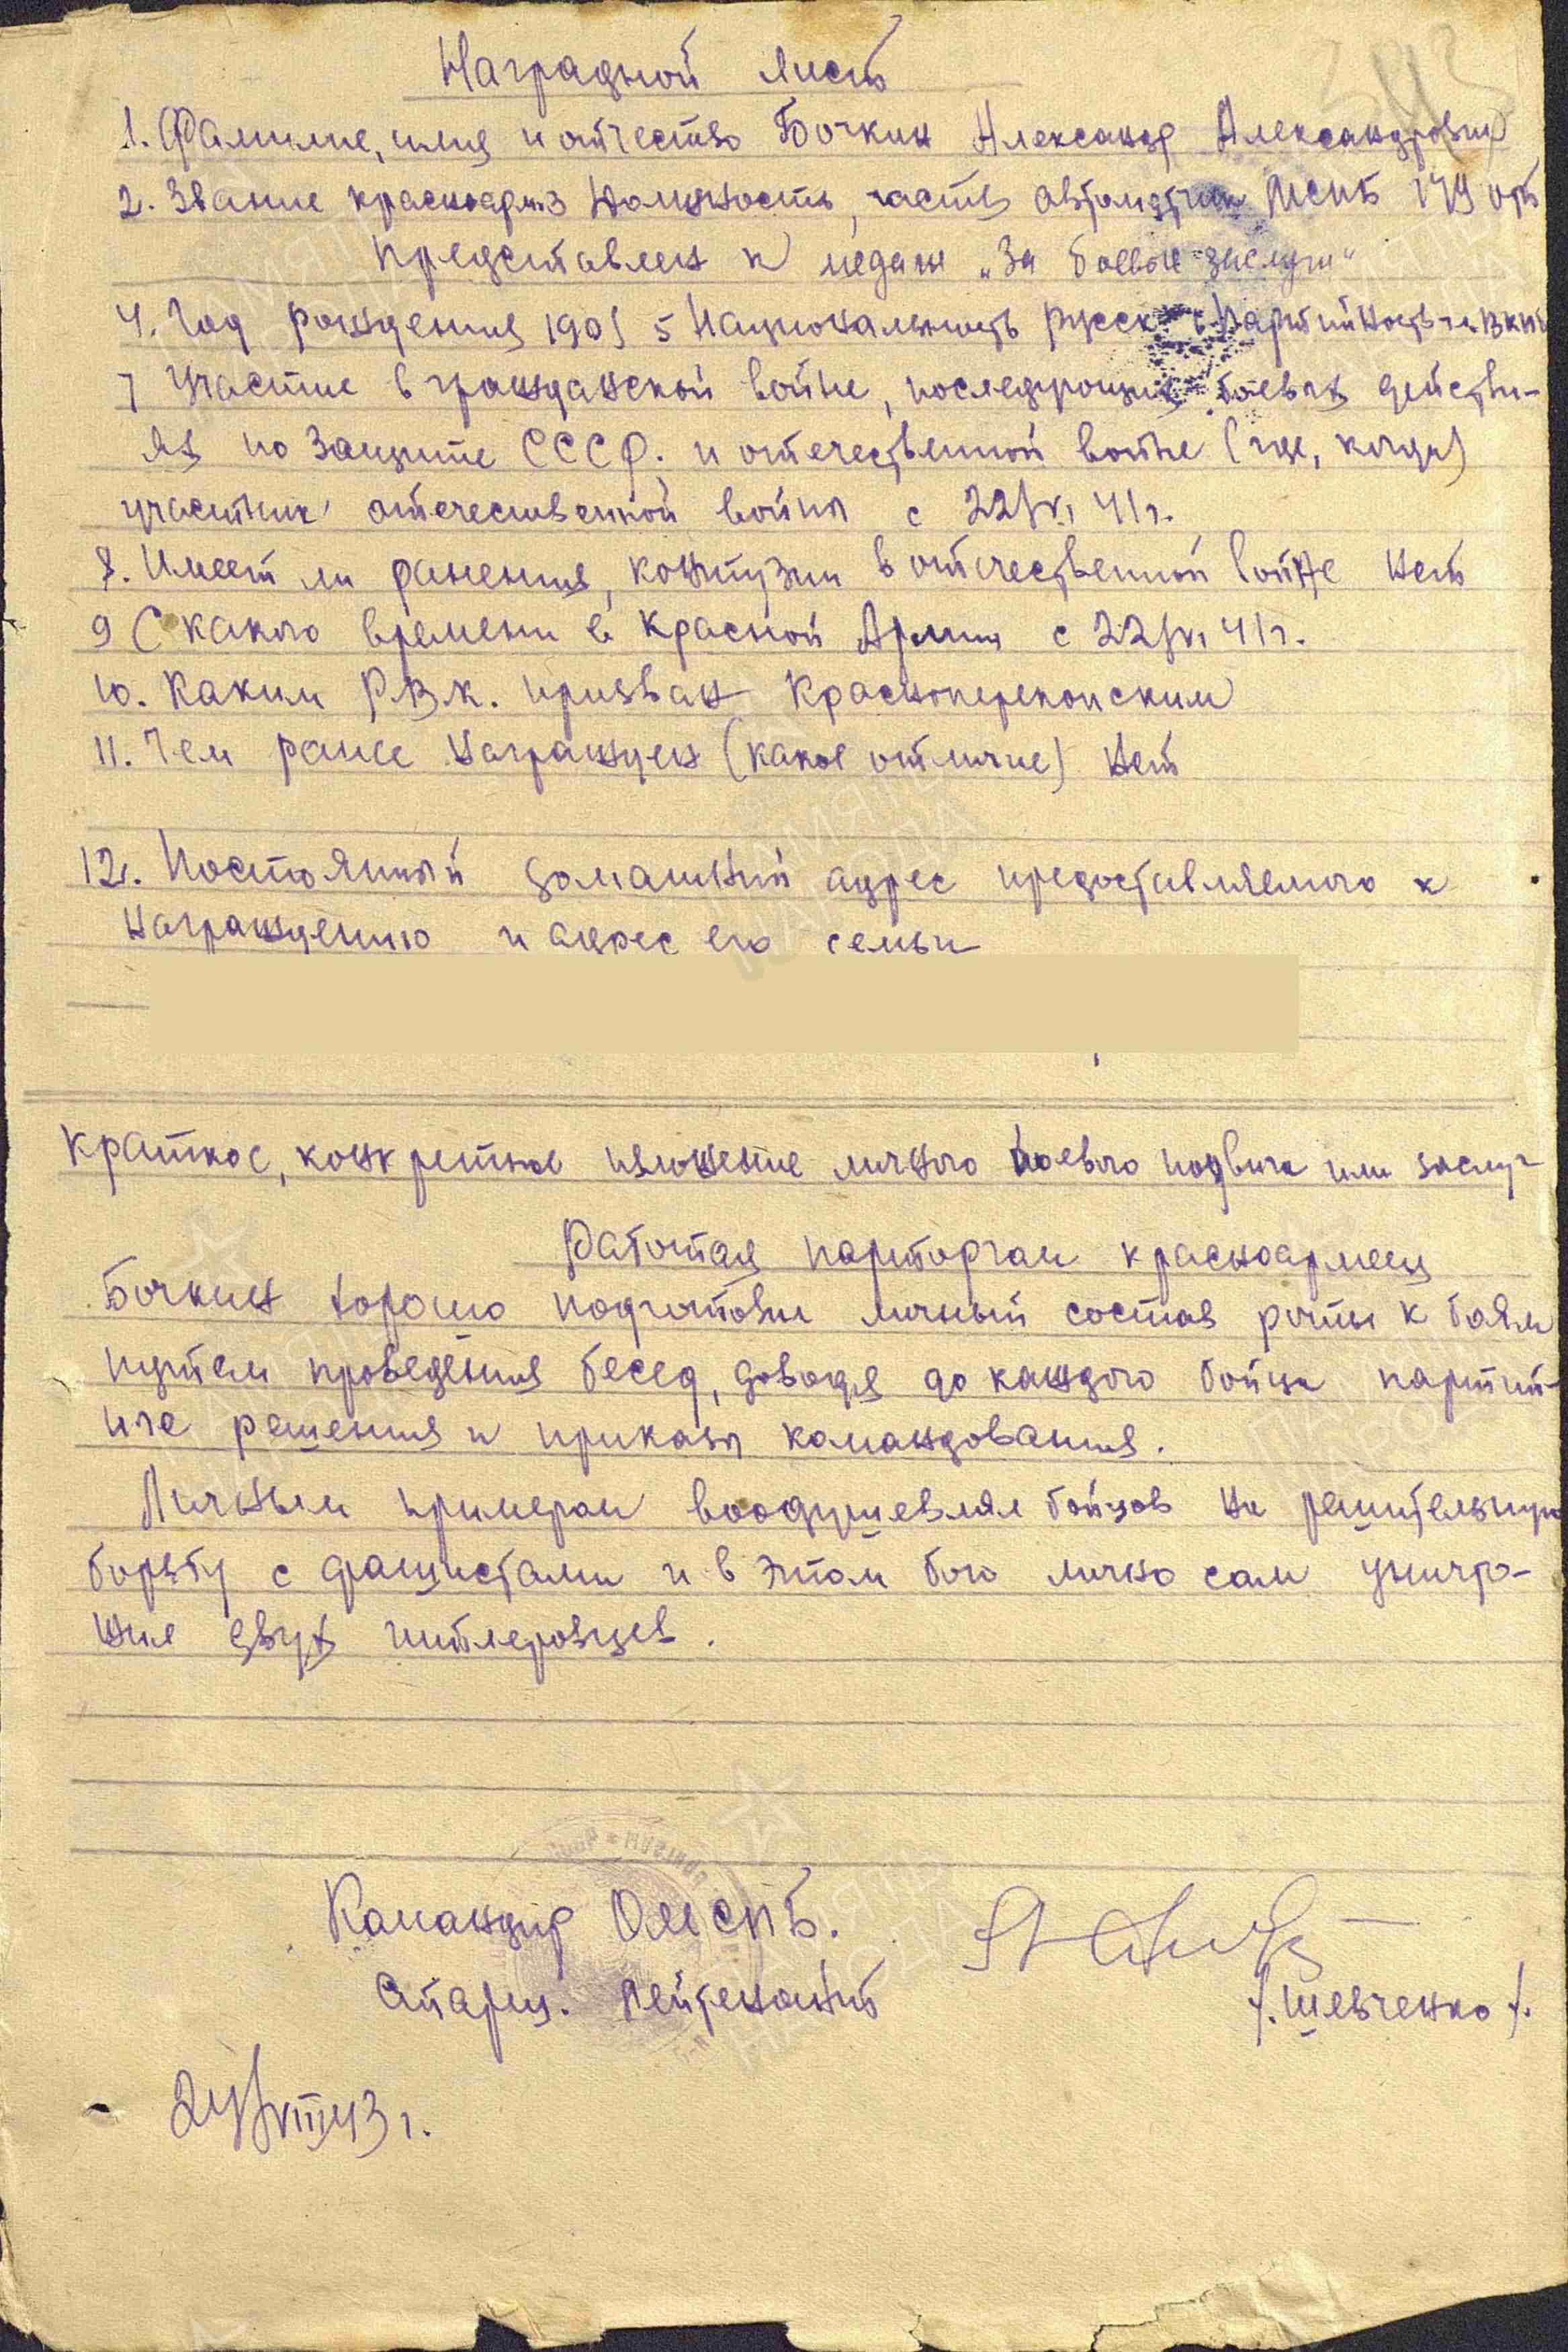 Наградной лист
1. Фамилие, имя и отчество Бочкин Александр Александрович
2. Звание красноарм. 3 Должность, часть автоматчик МСПБ 179 отб
представлен к медали „За боевые заслуги“
4. Год рождения 1905 5 Национальность русск 6 Партийность чл. ВКПб
7 Участие в гражданской войне, последующих боевых действи-
ях по защите СССР. и отечественной войне (где, когда)
участник отечественной войны с 22/VI 41г.
8. Имеет ли ранения, контузии в отечественной войне нет
9 С какого времени в Красной Армии с 22/VI 41г.
10. Каким Р.В.К. призван Красноперекопским
11. Чем ранее награжден (какое отличие) нет
12. Постоянный домашний адрес предоставляемого к
награждению и адрес его семьи
Краткое, конкретное изложение личного боевого подвига или заслуг
Работая парторгом красноармеец
Бочкин хорошо подготовил личный состав роты к боям
путем проведения бесед, доводя до каждого бойца партий-
ные решения и приказы командования.
Личным примером воодушевлял бойцов на решительную
борьбу с фашистами и в этом бою лично сам уничто-
жил двух гитлеровцев.
Командир ОМСПБ.
Старш. Лейтенант
/. Шевченко /.
24/VIII 43 г.
ПАМЯТЬ
НАРОДА